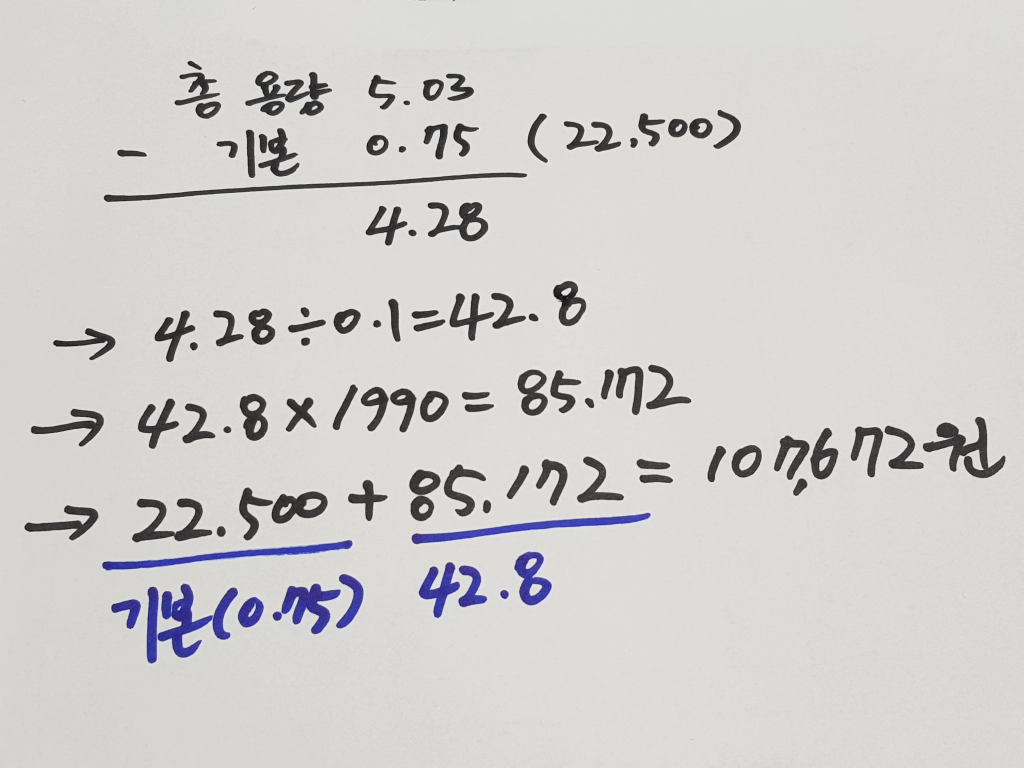 총 용량 5.03
- 기본 0.75 (22,500)
4.28
→ 4.28÷0.1=42.8
→ 42.8×1990=85.172
→ 22.500+85.172=107,672원
기본(0.75) 42.8